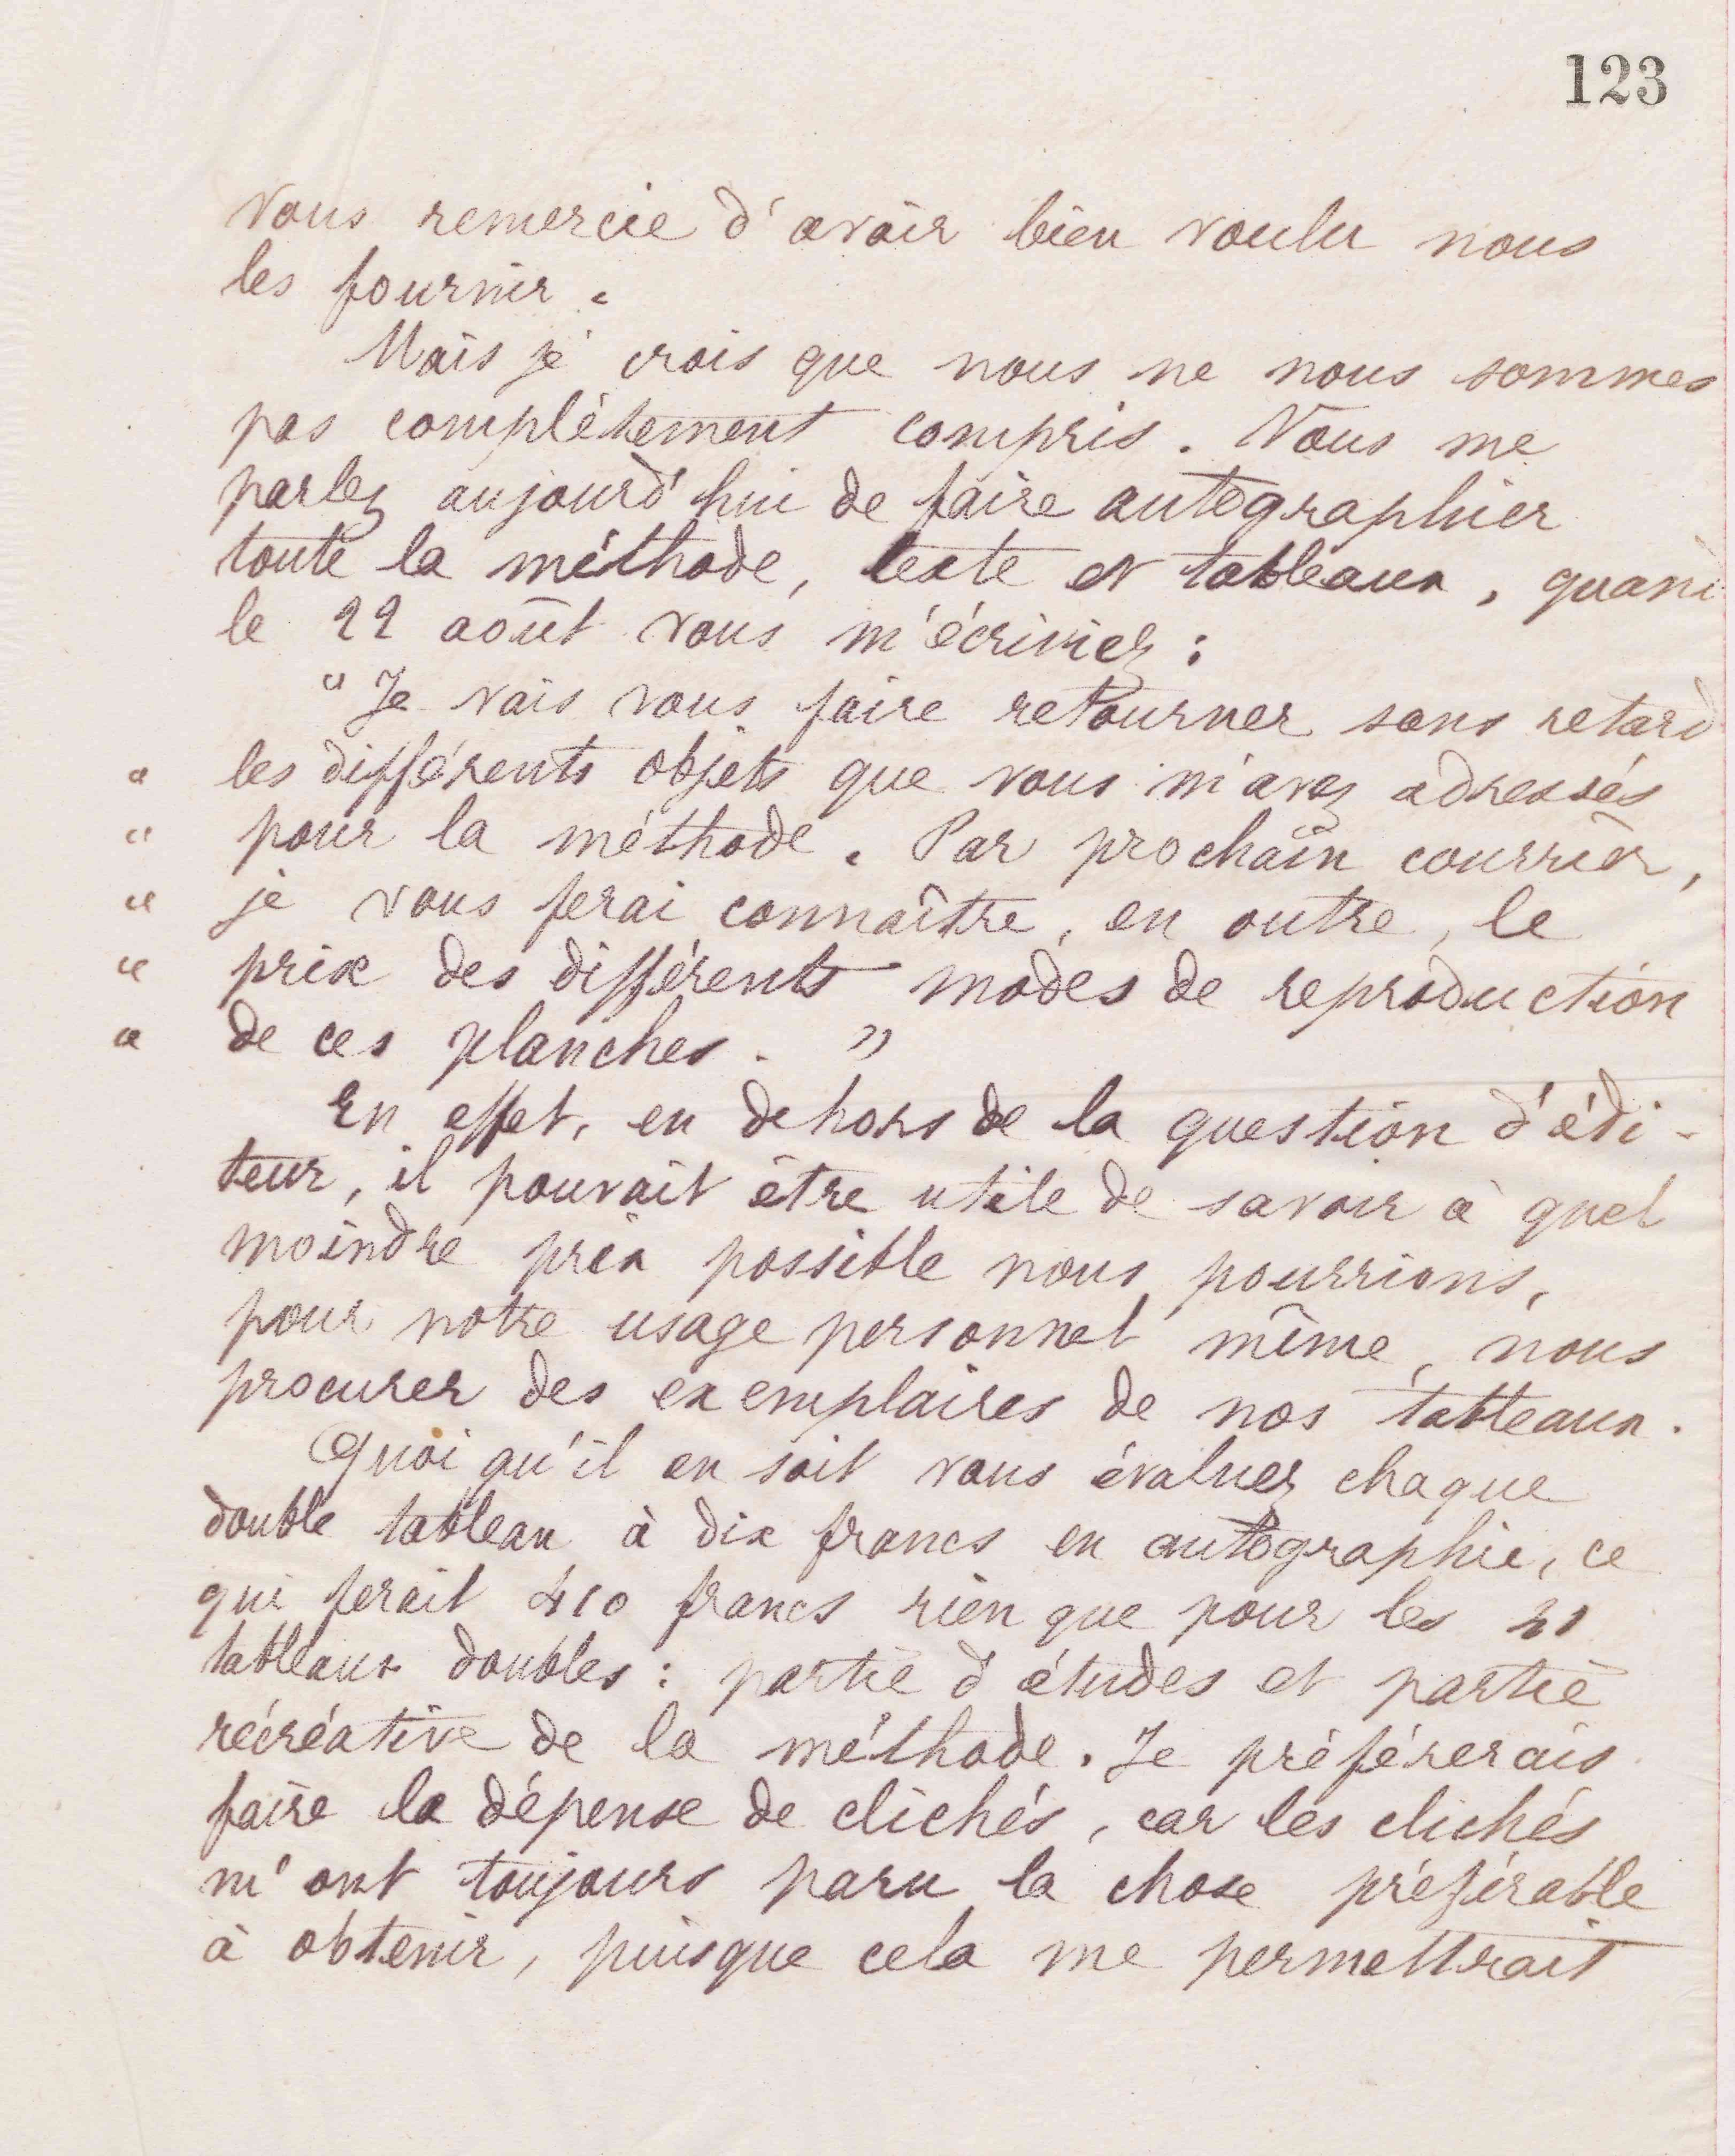 123
vous remercie d'avoir bien voulu nous
les fournir.
Mais je crois que nous ne nous sommes
pas complètement compris. Vous me
parlez aujourd'hui de faire autographier
toute la méthode, texte et tableaux, quand
le 22 août vous m'écriviez :
" Je vais vous faire retourner sans retard
" les différents objets que vous m'avez adressés
" pour la méthode. Par prochain courrier,
" je vous ferai connaître, en outre, le
" prix des différents modes de reproduction
" de ces planches. "
En effet, en dehors de la question d'édi-
teur, il pouvait être utile de savoir à quel
moindre prix possible nous pourrions,
pour notre usage personnel même, nous
procurer des exemplaires de nos tableaux.
Quoi qu'il en soit vous évaluez chaque
double tableau à dix francs en autographie, ce
qui ferait francs rien que pour les
tableaux doubles : partie d'études et partie
récréative de la méthode. Je préférerais
faire la dépense de clichés, car les clichés
m'ont toujours paru la chose préférable
à obtenir, puisque cela me permettrait